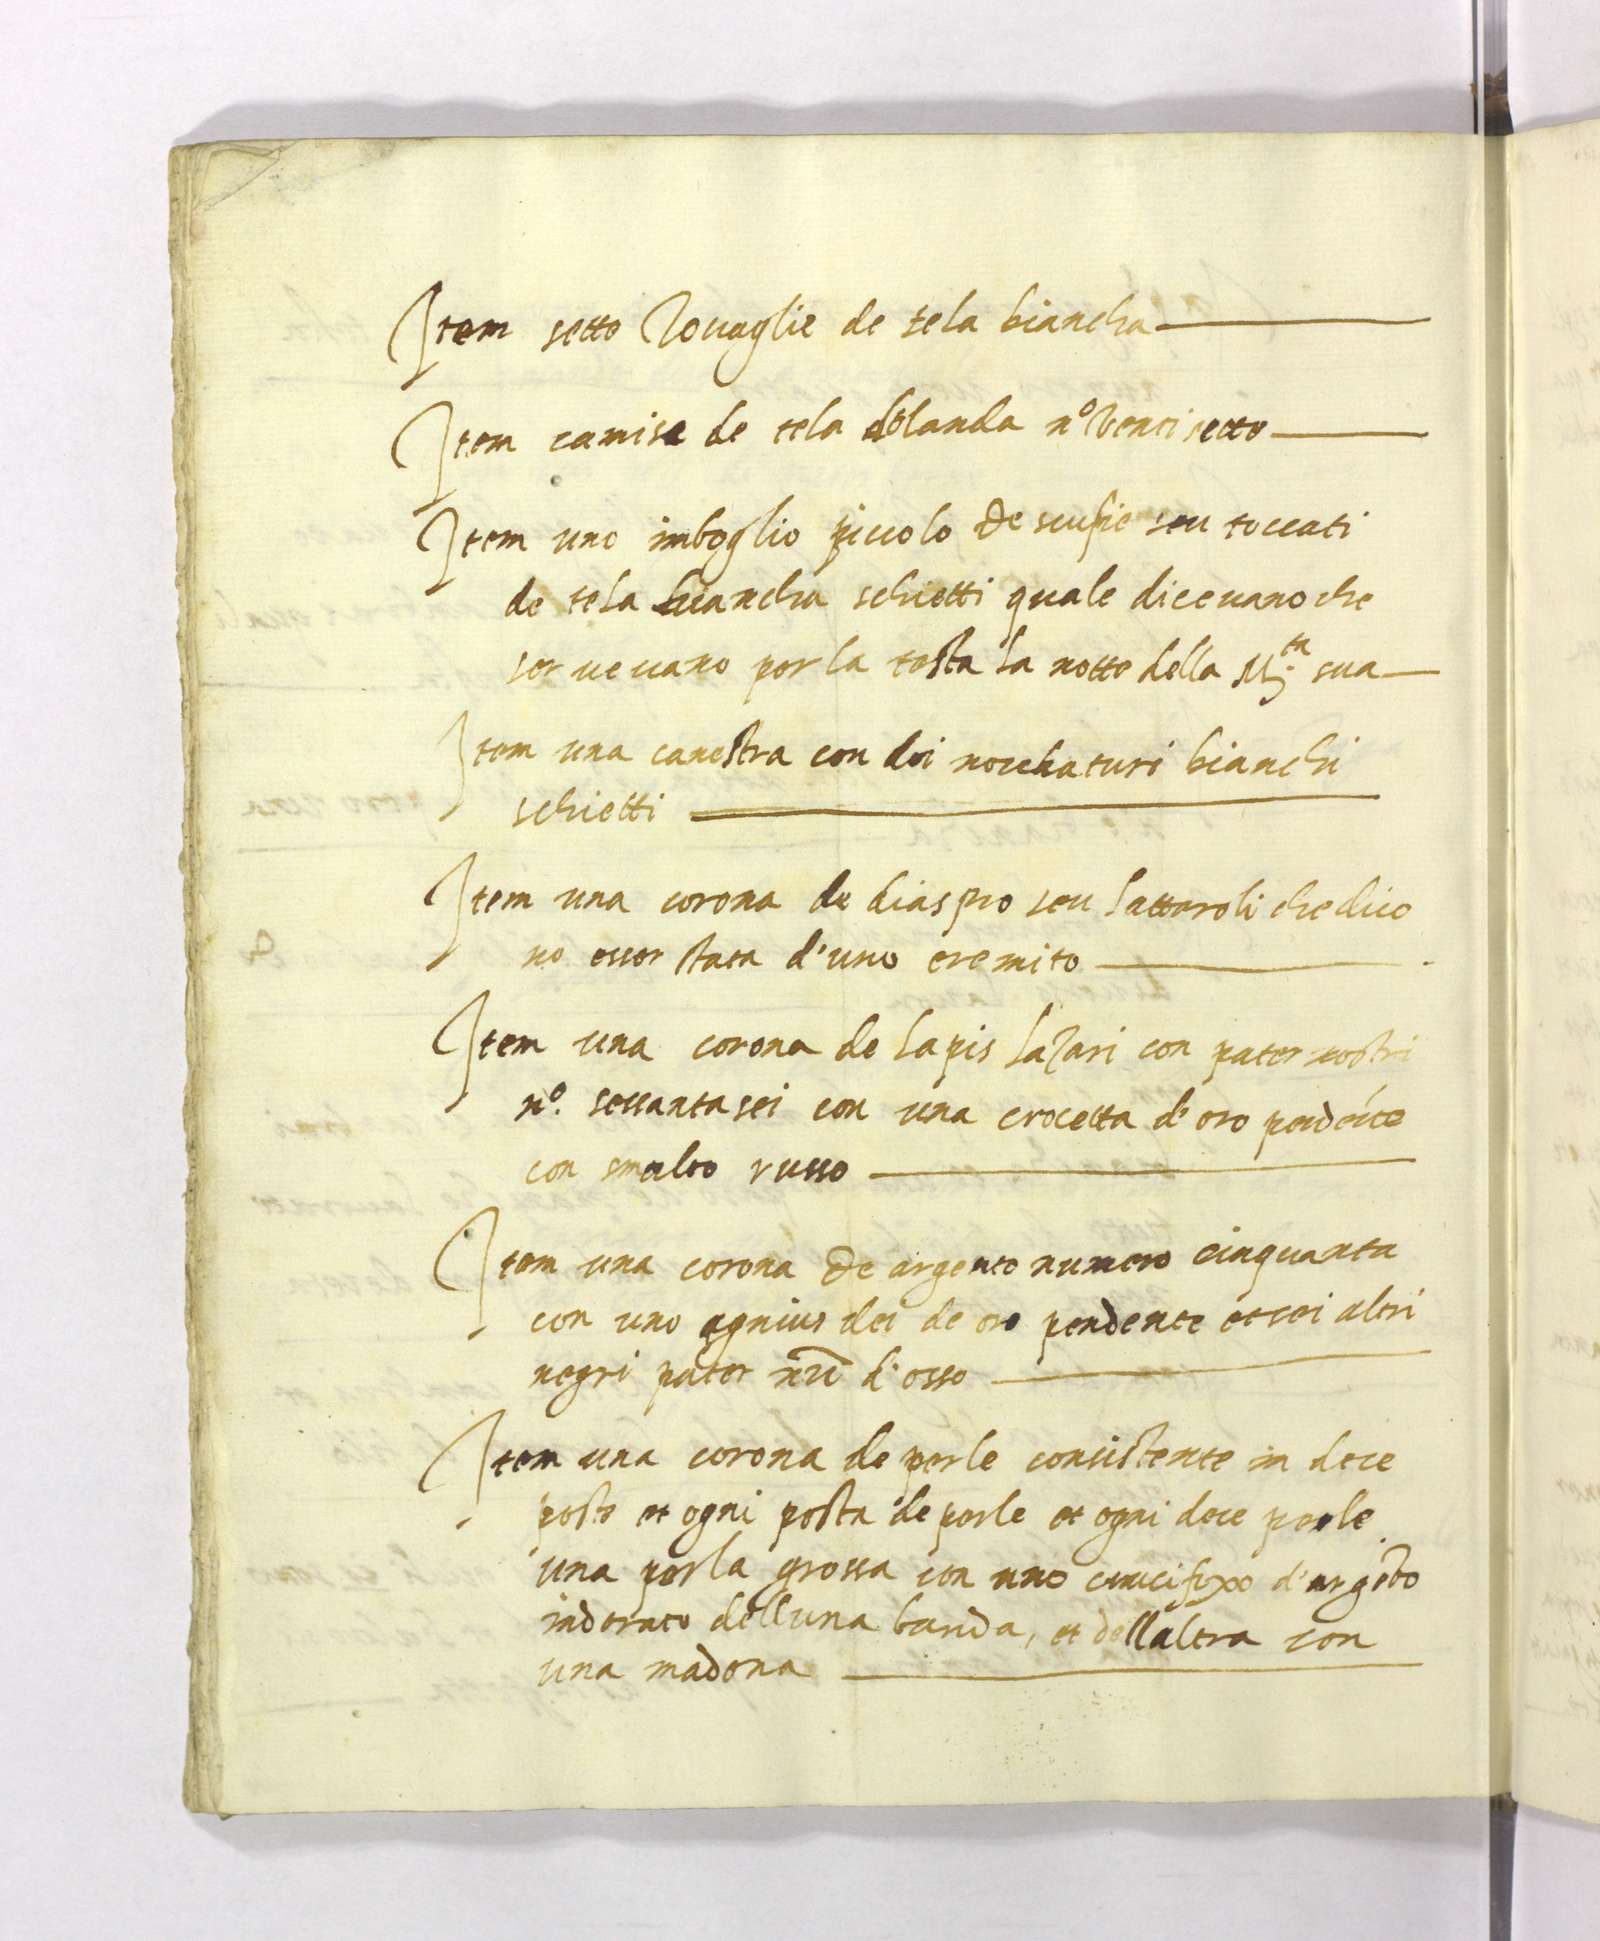 Item sette Tovaglie de tela biancha
Item camise de tela dolanda nº Venti sette
Item uno imboglio piccolo de scufie seu toccati
de tela biancha schietti quale dicevano che
servevano per la testa la notte della M.ta sua
Item una canestra con doi nocchaturi bianchi
schietti
Item una corona de diaspro seu lattaroli che dico
no esser stata d'uno eremito
Item una corona de lapis lazari con pater nostri
nº. sessanta sei con una crocetta d'oro pendéte
con smalto russo
Item una corona de argento numero cinquanta
con uno agnius dei de oro pendente et sei altri
negri pater nr̃i d'osso
Item una corona de perle consistente in dece
poste et ogni posta de perle et ogni dece perle
una perla grossa con uno crucifixo d'argẽto
indorato dell una banda, et dell altra con
una madona